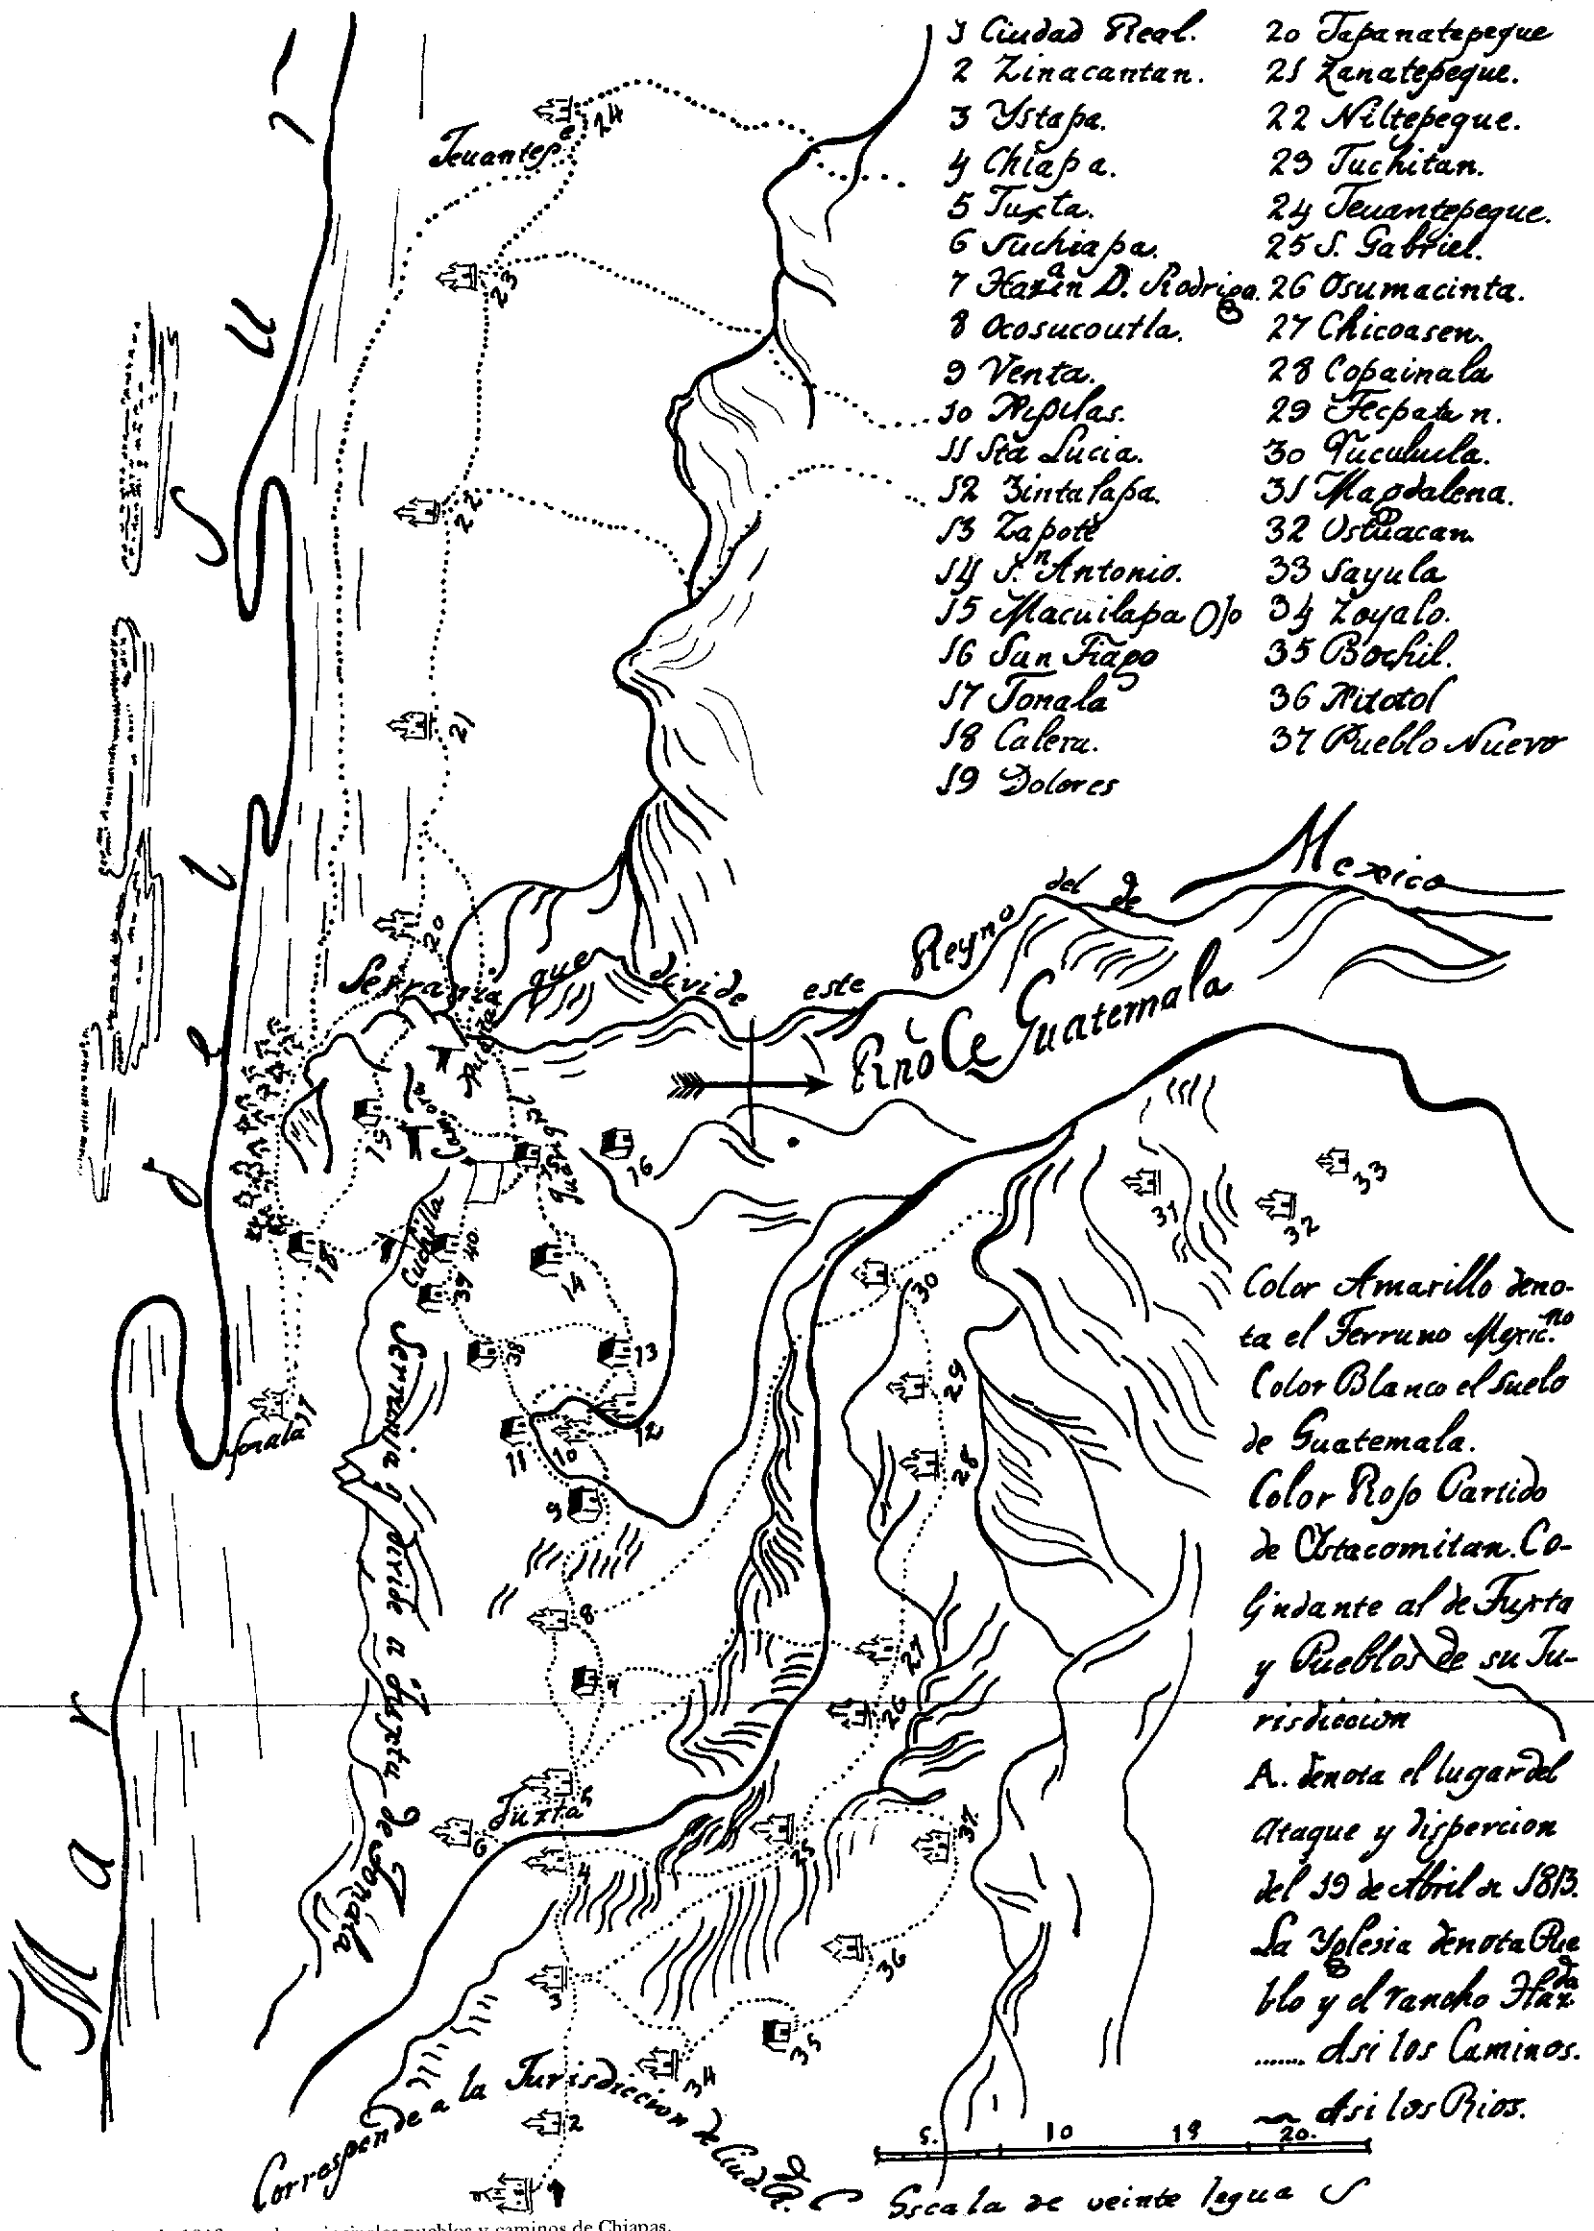 1 Ciudad Real.
2 Zinacantan.
3 Ystapa.
4 Chiapa.
5 Tuxta.
6 Suchiapa.
7 Haz.ª en D. Rodrigo.
8 Ocosucoutla.
9 Venta.
11 Sta Lucia.
12 Zintalapa.
13 Zapote
14 S.n Antonio.
15 Macuilapa Ojo
16 San Tiago
17 Tonala
18 Calera.
19 Dolores
20 Tapanatepeque
21 Zanatepeque.
22 Niltepeque.
23 Tuchitan.
24 Teuantepeque.
25 S. Gabriel.
26 Osumacinta.
27 Chicoasen.
28 Copainala
29 Tecpatan.
31 Magdalena.
32 Ostuacan
33 Sayula
34 Zoyalo.
35 Bochil.
36 Xitotol
37 Pueblo Nuevo
Teuantep.e
24
23
22
21
20
Mar del Sur
Serrania que divide este Reyno del de Mexico
Rno De Guatemala
15
16
18
40
39
14
38
13
12
11
10
9
8
7
Cuchilla
Tonala 17
Serrania q divide a Tuxta de Tonala
31
32
33
30
29
28
27
26
Tuxta 5
6
4
25
37
36
3
35
34
2
1
Corresponde a la Turisdiccion de Ciud.d R.
Color Amarillo deno-
ta el Terruno Mexic.no
Color Blanco el Suelo
de Guatemala.
Color Rojo Partido
de Ystacomitan. Co-
lindante al de Tuxta
y Pueblos de su Tu-
risdiccion
A. denota el lugar del
Ataque y dispercion
del 19 de Abril de 1813.
La Yglesia denota Pue
blo y el rancho Haz.da
....... Asi los Caminos.
Asi los Rios.
5. 10 15 20.
Escala de veinte legua s
pueblos y caminos de Chiapas.